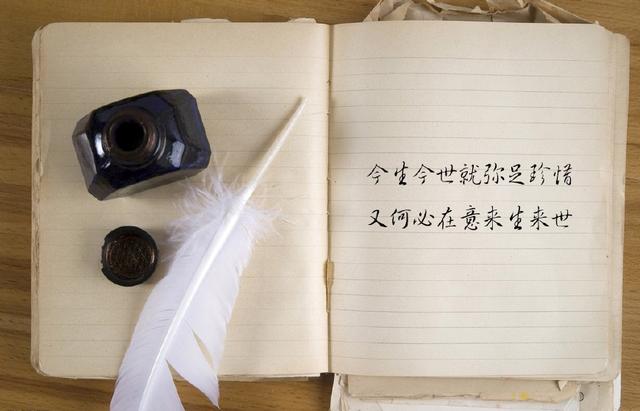 今生今世就弥足珍惜
又何必在意来生来世